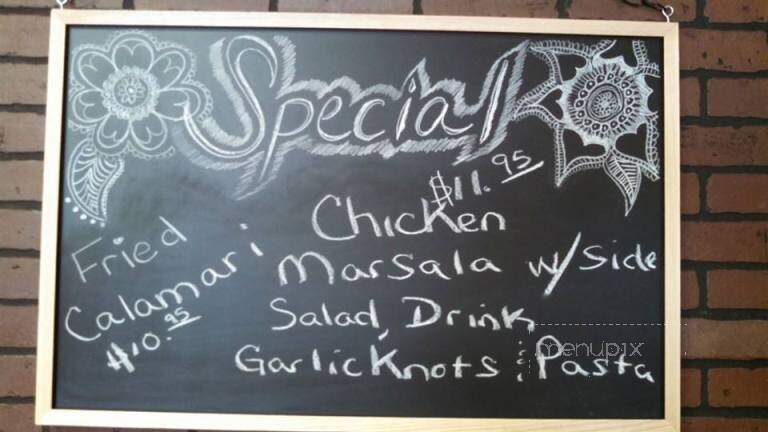 Special
$11.95
Chicken
Marsala w/ side
Salad, Drink,
Garlic Knots & Pasta
Fried
Calamari
$10.95
menupix